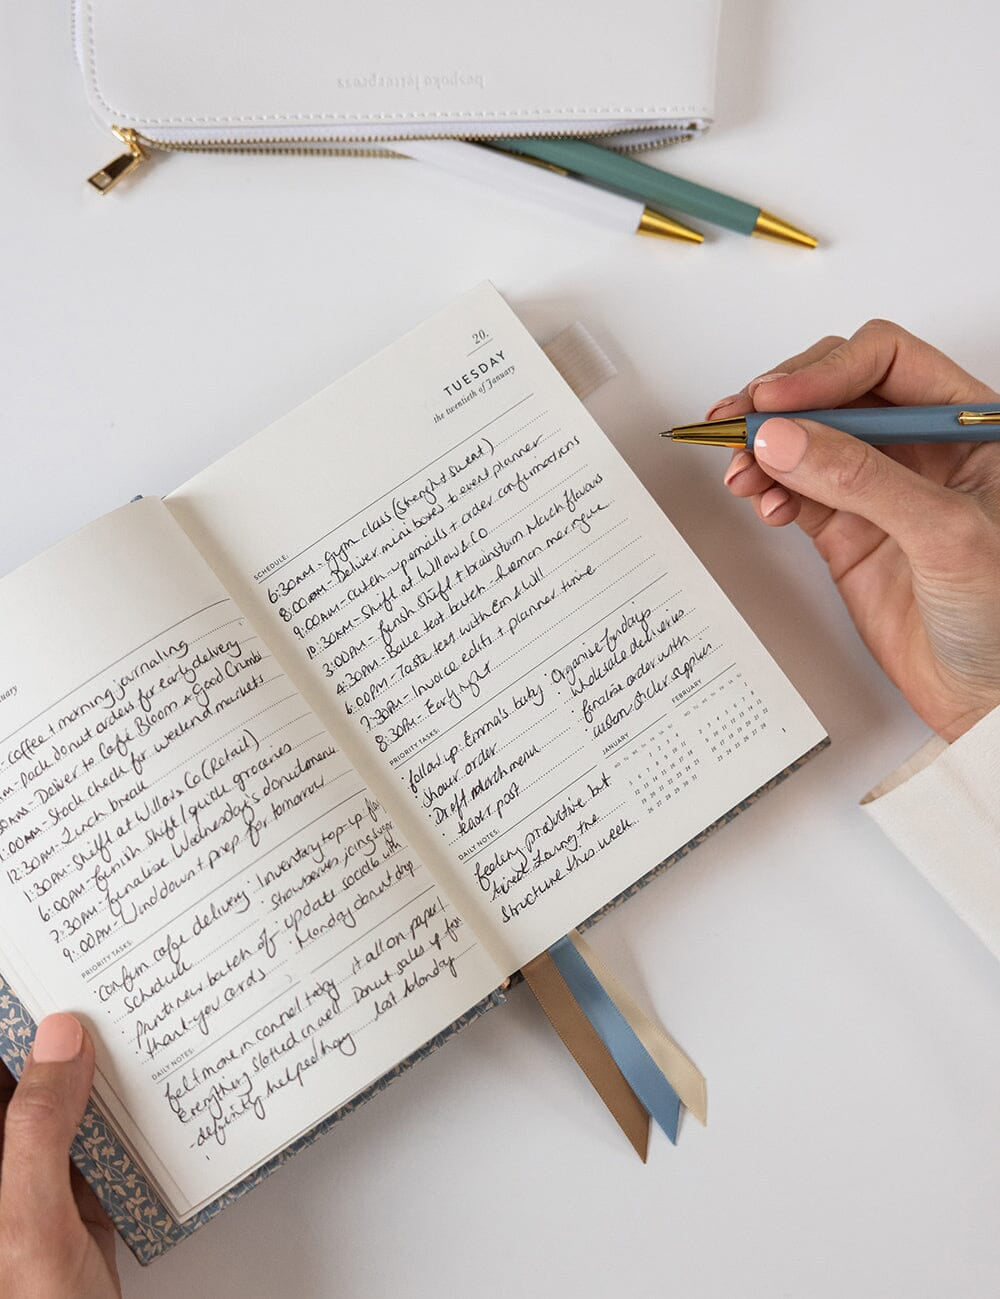 bespoke letterpress
nuary
- coffee + morning journaling
AM - Pack donut orders for early delivery
AM - Deliver to Café Bloom + Good Crumb
1:00AM - Stock check for weekend markets
12:30PM - Lunch break
1:30PM - Shift at Willow & Co (Retail)
6:00PM - finish shift / quick groceries
7:30PM - finalise Wednesday's donut menu
9:00PM - Wind down + prep for tomorrow
PRIORITY TASKS:
· confirm cafe delivery
schedule
· Print new batch of
thank-you cards
· Inventory top-up
strawberries, icing
· update socials with
Monday donut drop
DAILY NOTES:
felt more in control today
Everything slotted in well
- definitely helped having
it all on paper!
Donut sales up from
last Monday
20.
TUESDAY
the twentieth of January
SCHEDULE:
6:30AM - Gym class (Strenght + sweat)
8:00AM - Deliver mini boxes to event planner
9:00AM - catch-up emails + order confirmations
10:30AM - Shift at Willow & Co
3:00PM - finish shift + brainstorm March flavours
4:30PM - Bake test batch - lemon meringue
6:00PM - Taste test with Em & Will
7:30PM - Invoice edits + planner time
8:30PM - Early night
PRIORITY TASKS:
· follow up Emma's baby
shower order
· Draft March menu
· knot post
· Organise Fondays
wholesale deliveries
· finalise order with
custom sticker supplies
DAILY NOTES:
feeling productive but
tired. Loving the
structure this week..
JANUARY
FEBRUARY